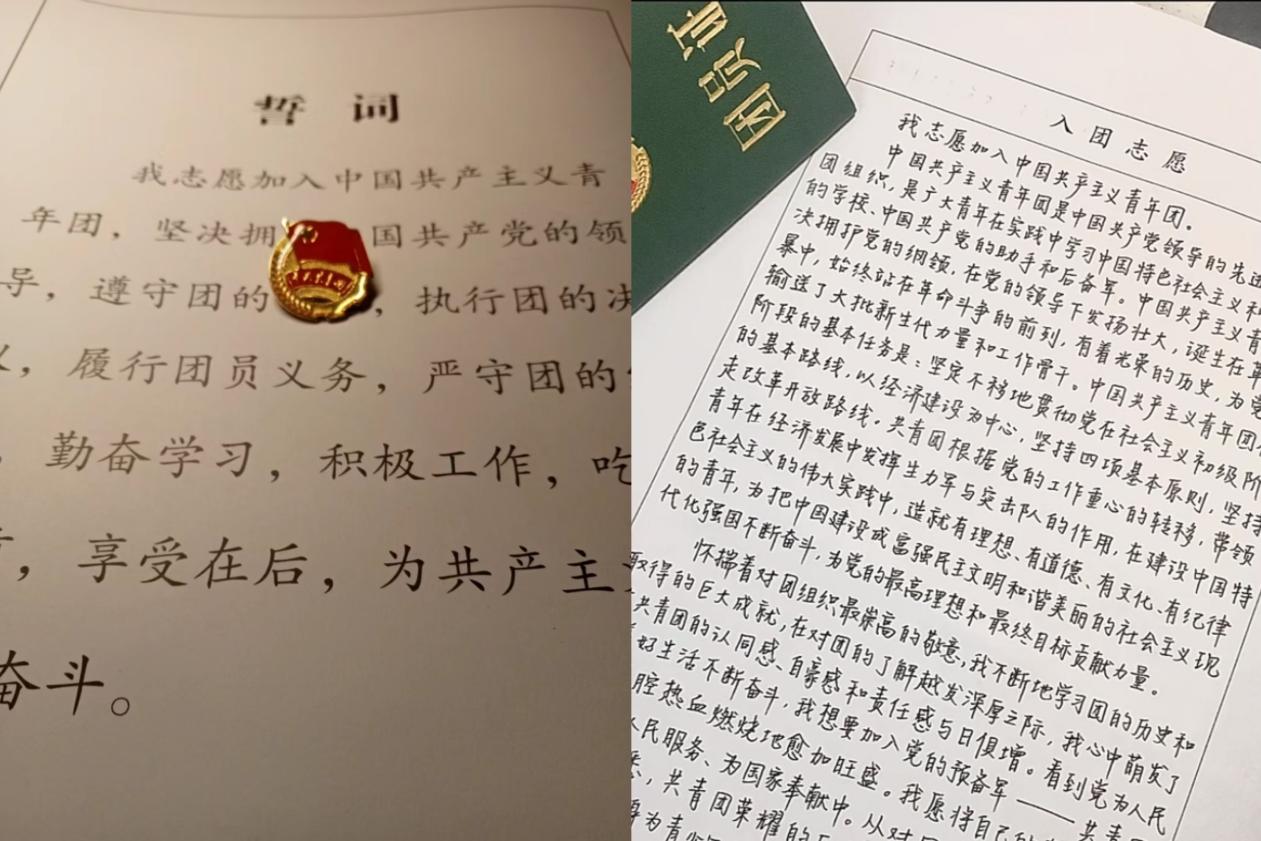 誓 词
我志愿加入中国共产主义青
年团，坚决拥 国共产党的领
导，遵守团的 ，执行团的决
，履行团员义务，严守团的
，勤奋学习，积极工作，吃
，享受在后，为共产主
奋斗。
团员证
入团志愿
我志愿加入中国共产主义青年团。
中国共产主义青年团是中国共产党领导的先进
团组织，是广大青年在实践中学习中国特色社会主义和
的学校、中国共产党的助手和后备军。中国共产主义青
决拥护党的纲领，在党的领导下发扬壮大，诞生在革
暴中，始终站在革命斗争的前列，有着光荣的历史，为党
输送了大批新生代力量和工作骨干。中国共产主义青年团
阶段的基本任务是：坚定不移地贯彻党在社会主义初级阶
的基本路线，以经济建设为中心，坚持四项基本原则，坚持
走改革开放路线。共青团根据党的工作重心的转移，带领
青年在经济发展中发挥生力军与突击队的作用，在建设中国特
色社会主义的伟大实践中，造就有理想、有道德、有文化、有纪律
的青年，为把中国建设成富强民主文明和谐美丽的社会主义现
代化强国不断奋斗，为党的最高理想和最终目标贡献力量。
怀揣着对团组织最崇高的敬意，我不断地学习团的历史和
取得的巨大成就，在对团的了解越发深厚之际，我心中萌发了
共青团的认同感、自豪感和责任感与日俱增。看到党为人民
好生活不断奋斗，我想要加入党的预备军——共青
腔热血燃烧地愈加旺盛。我愿将自己的
人民服务、为国家奉献中。从对
，共青团荣耀的
为青